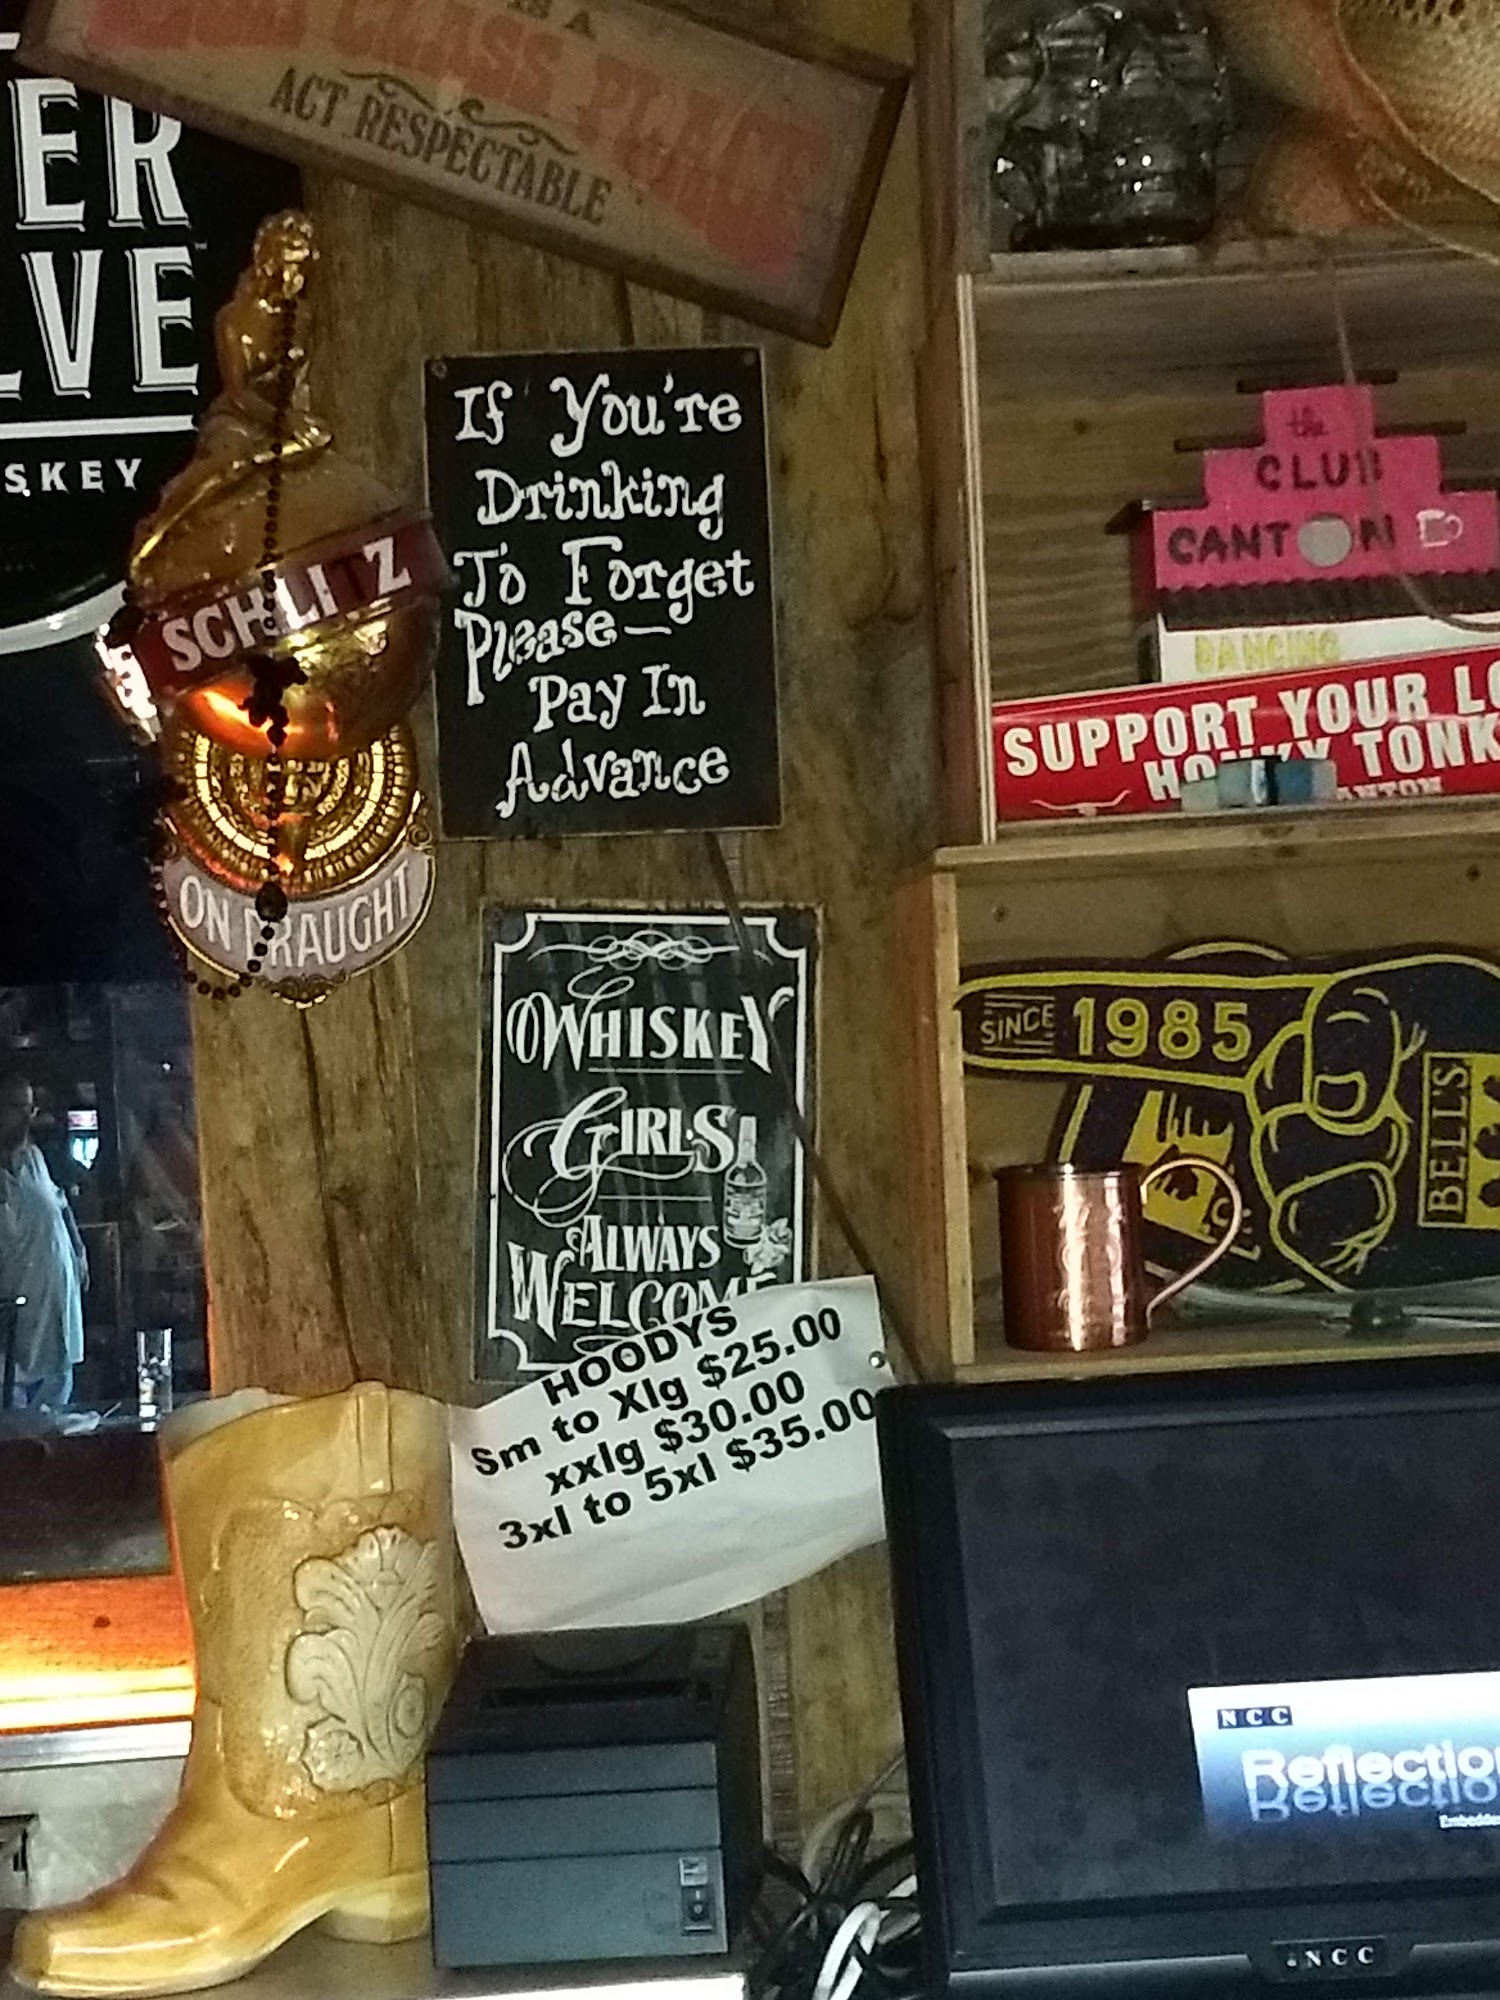 IS A
CLASS PLACE
ACT RESPECTABLE
ER
LVE
SKEY
SCHLITZ
ON DRAUGHT
If You're
Drinking
To Forget
Please—
Pay In
Advance
WHISKEY
GIRLS
ALWAYS
WELCOME
HOODYS
Sm to Xlg $25.00
xxlg $30.00
3xl to 5xl $35.00
the
CLUB
CANTON
DANCING
SUPPORT YOUR LO
HONKY TONK
ANTON
SINCE 1985
BELL'S
NCC
Reflection
Embedded
NCC